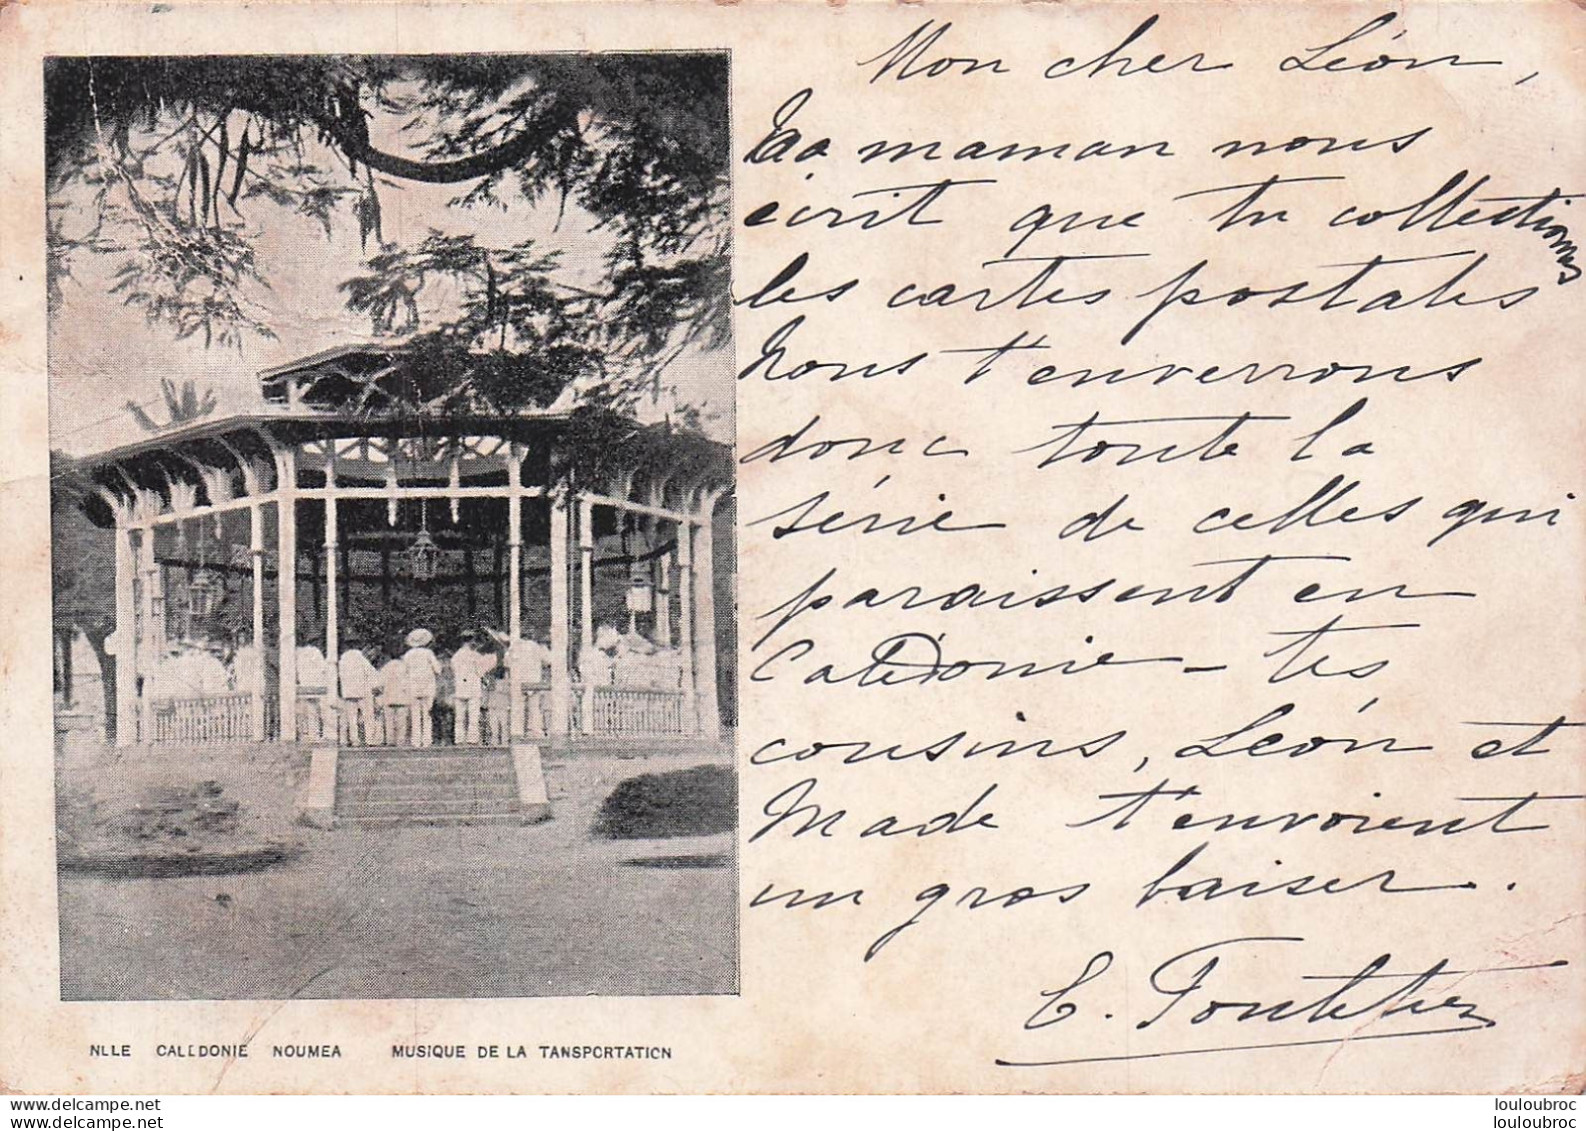 Mon cher Léon,
Ta maman nous
écrit que tu collectionnes
les cartes postales
Nous t'enverrons
donc toute la
série de celles qui
paraissent en
Calédonie - tes
cousins, Léon et
Made t'envoient
un gros baiser.
NLLE CALEDONIE NOUMEA MUSIQUE DE LA TANSPORTATION
www.delcampe.net
louloubroc
www.delcampe.net
louloubroc